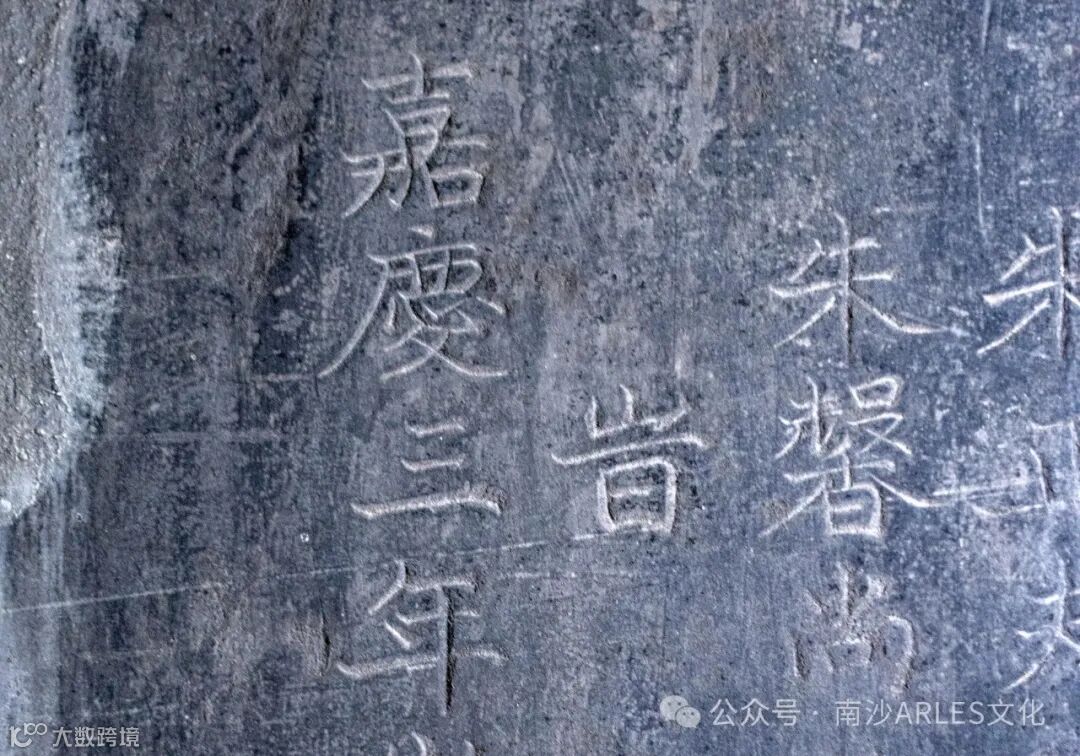 朱
朱馨尚
旹
嘉慶三年
公众号 · 南沙ARLES文化
大数跨境